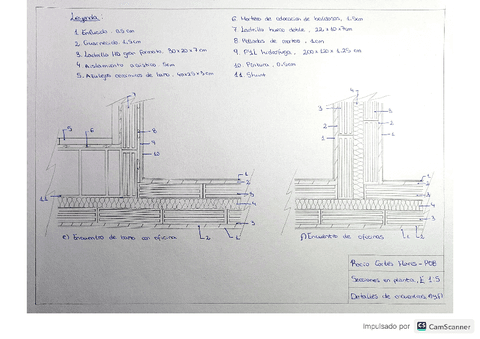 Leyenda
1. Enlucido, 0.5 cm
2. Guarnecido, 1.5 cm
3. Ladrillo H6 gran formato, 80x20x7 cm
4. Aislamiento acústico, 5 cm
5. cerámicos de baño, 40x25x5 cm
6. Mortero de colocación de baldosas, 1.5 cm
7. Ladrillo hueco doble, 22x10x7 cm
8. Pelladas de mortero, 1 cm
9. PYL hidrófugo, 200x120x1.25 cm
10. Pintura, 0.5 cm
11. Shunt
e) Encuentro de baño con oficina
f) Encuentro de oficinas
Rocío Cortés - POB
Secciones en planta, E 1:5
Detalles de encuentros
Impulsado por CS CamScanner